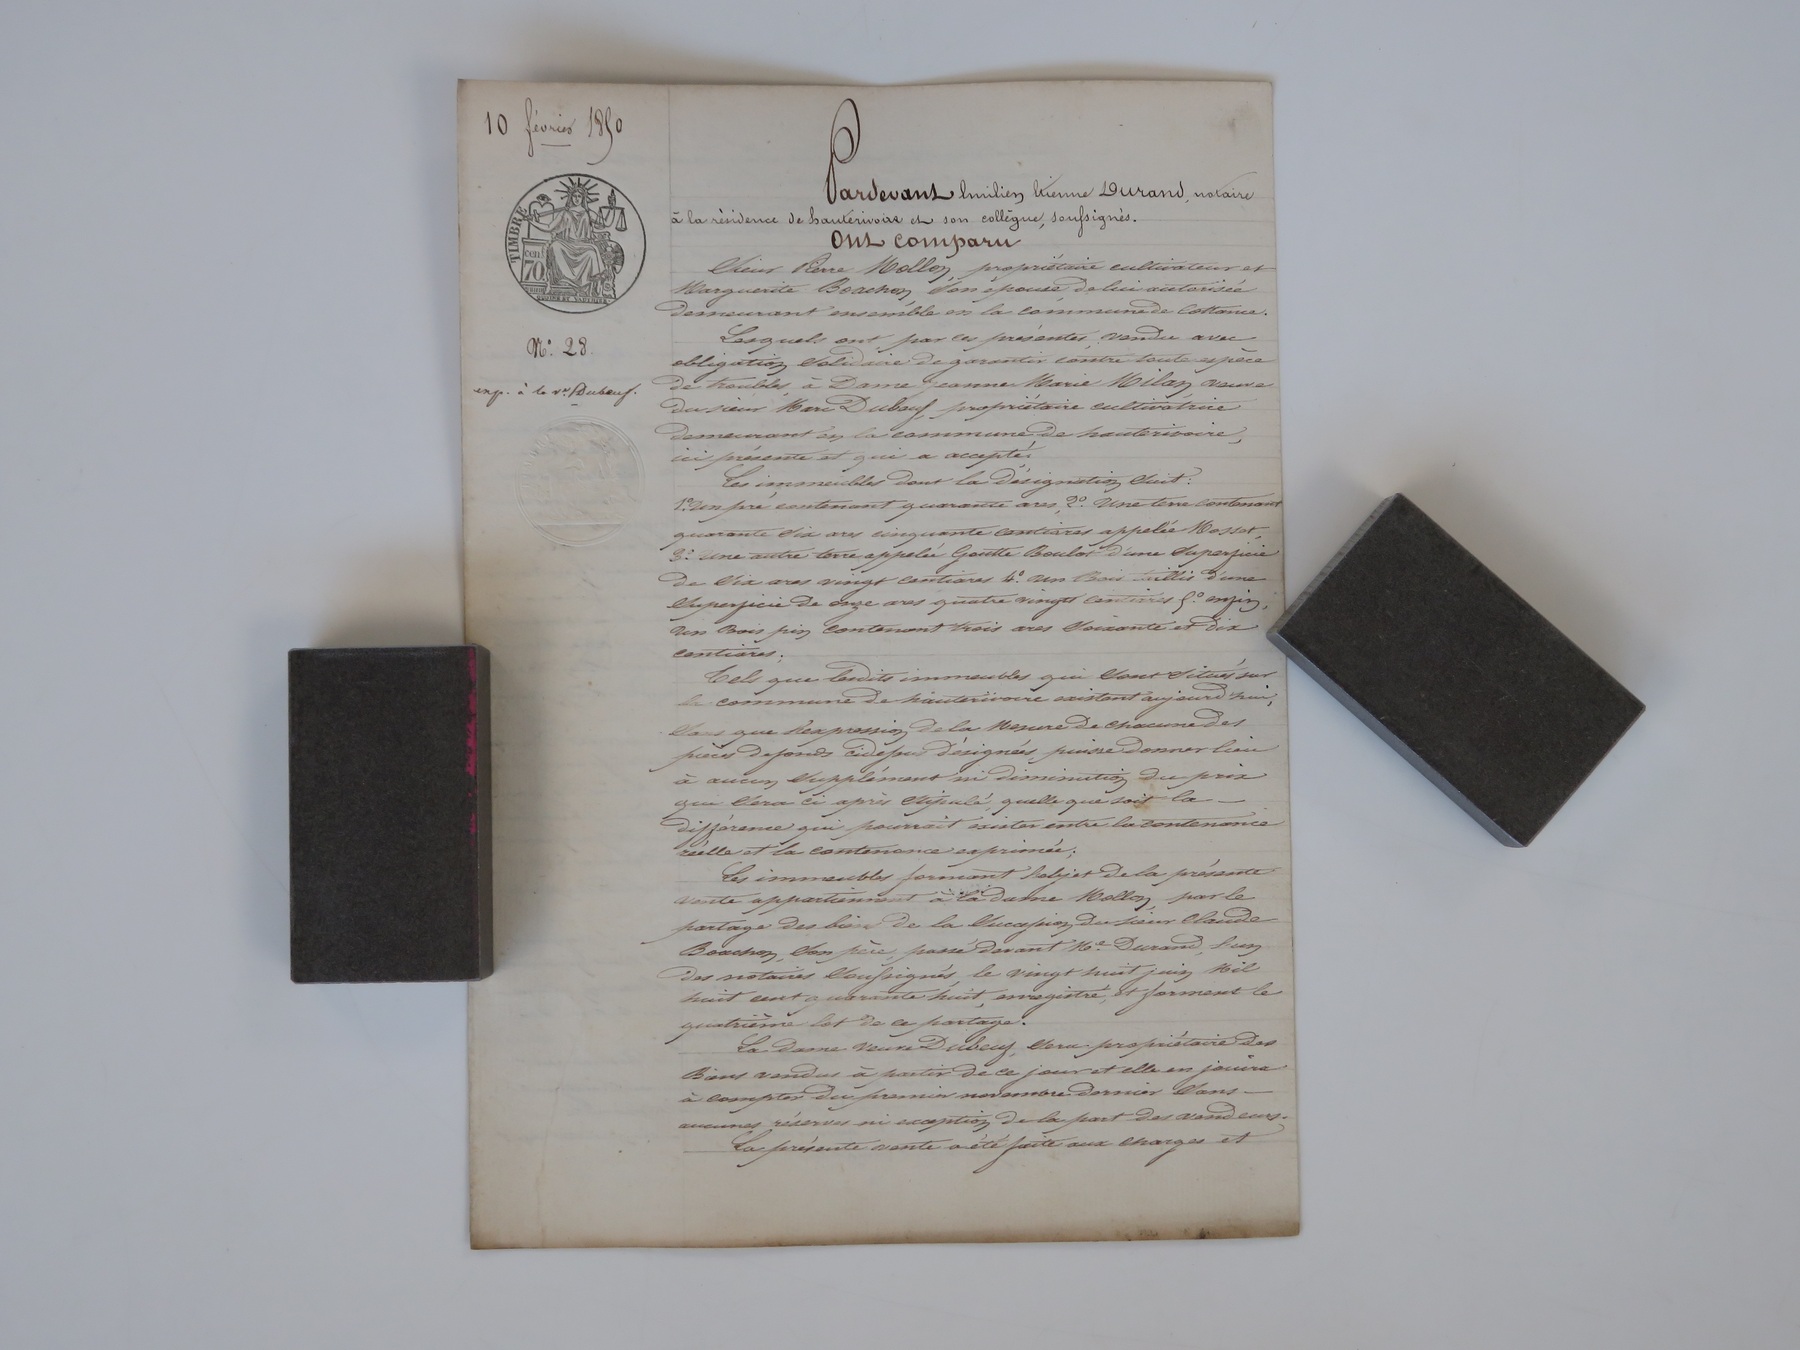 10 février 1850
TIMBRE
CENT.
70.
N.° 28.
exp. à la v.ve Dubeuf.
Pardevant Emilien Etienne Durand, notaire
à la résidence de hauterivoire et son collègue, soussignés.
Ont comparu
Sieur Pierre Mollon, propriétaire cultivateur et
Marguerite Bouchon, son épouse de lui autorisée
demeurant ensemble en la commune de Cottance.
Lesquels ont, par ces présentes, vendu avec
obligation solidaire de garantir contre toute espèce
de troubles, à Dame Jeanne Marie Milan veuve
du sieur Marc Dubeuf, propriétaire cultivatrice
demeurant en la commune de hauterivoire,
ici présente et qui a accepté.
Les immeubles dont la désignation suit:
1.° Un pré contenant quarante ares, 2.° Une terre contenant
quarante six ares cinquante centiares appelée Mosset,
3.° une autre terre appelée Goutte Boulat d'une superficie
de six ares vingt centiares 4.° un Bois taillis d'une
superficie de onze ares quatre vingts centiares 5.° enfin,
un Bois pin contenant trois ares soixante et dix
centiares;
Tels que lesdits immeubles qui sont situés sur
la commune de hauterivoire existent aujourd'hui,
sans que l'expression de la Mesure de chacune des
pièces de fonds ci dessus désignées, puisse donner lieu
à aucun supplément ni diminution du prix
qui sera ci après stipulé, quelle que soit la
différence qui pourrait exister entre la contenance
réelle et la contenance exprimée;
Les immeubles formant l'objet de la présente
vente appartiennent à la dame Mollon, par le
partage des biens de la succession du sieur Claude
Bouchon, son père, passé devant M.e Durand, l'un
des notaires soussignés, le vingt huit juin Mil
huit cent quarante huit, enregistré, et forment le
quatrième lot de ce partage.
La dame veuve Dubeuf, sera propriétaire des
Biens vendus à partir de ce jour et elle en jouira
à compter du premier novembre dernier sans
aucunes réserves ni exception de la part des vendeurs.
La présente vente a été faite aux charges et